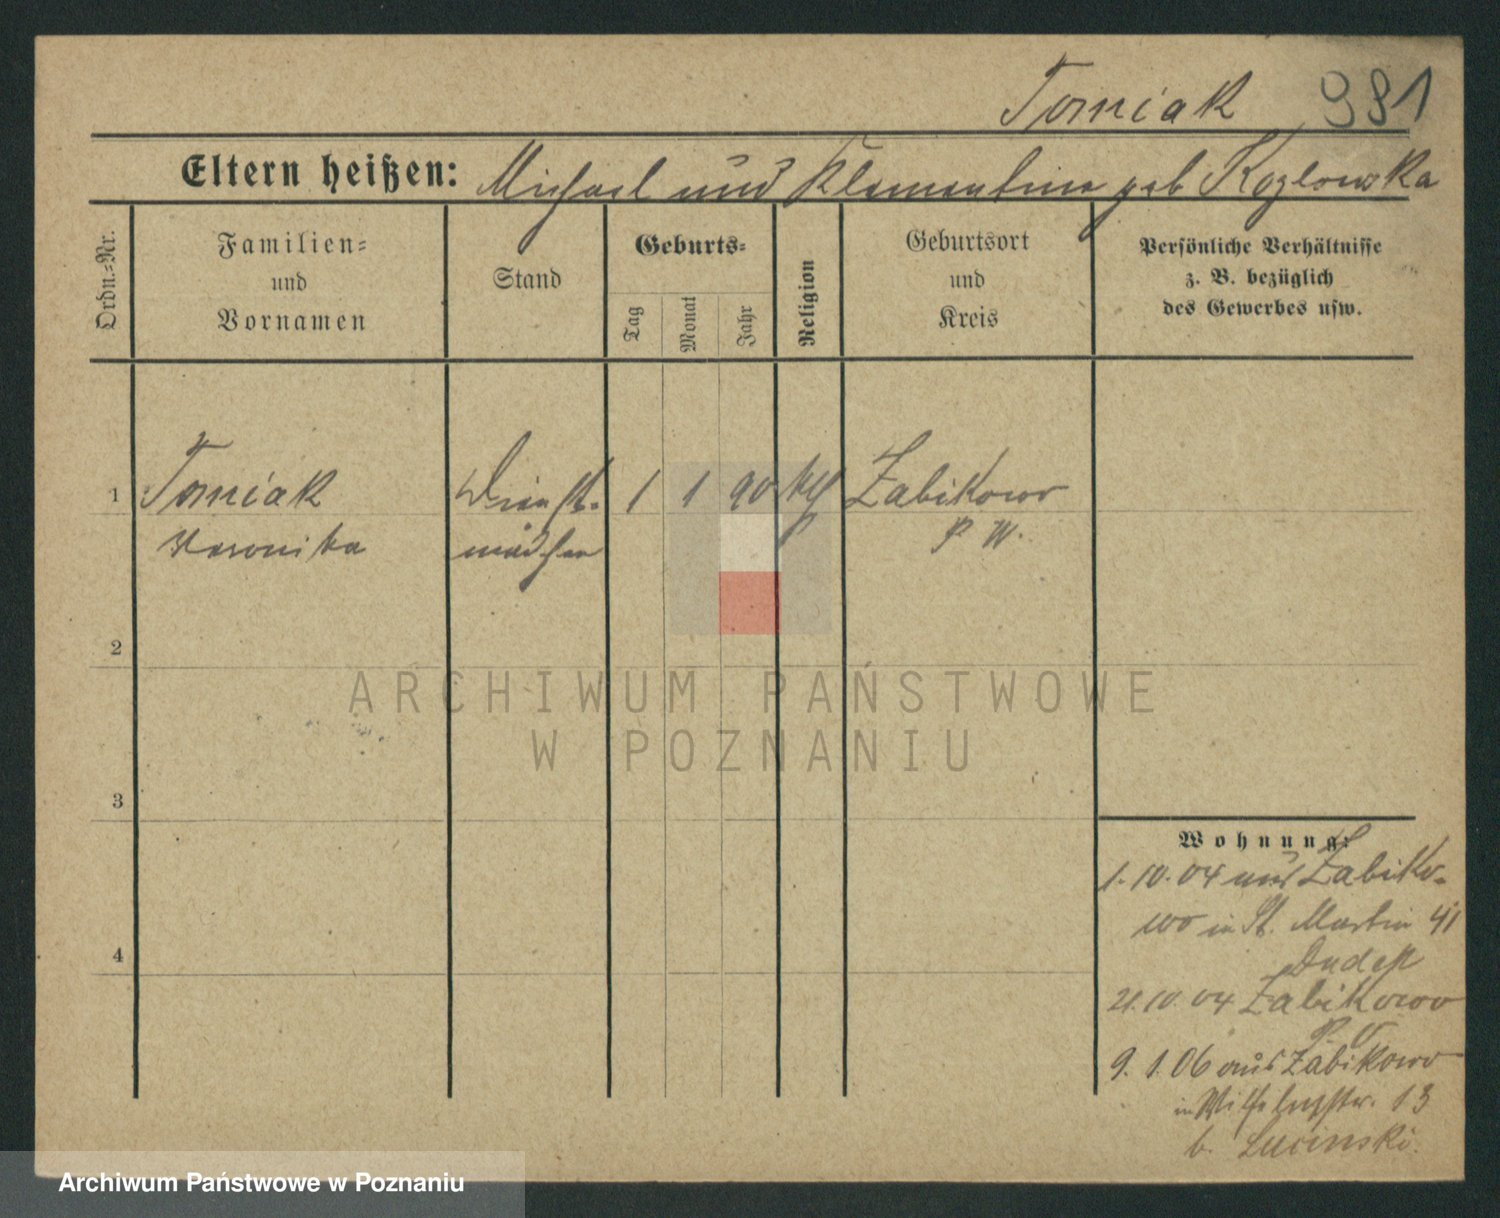 Tomiak 981
Eltern heißen: Michael und Klementine geb Kozlowska
Ordn.=Nr.
Familien=
und
Vornamen
Stand
Geburts=
Tag
Monat
Jahr
Religion
Geburtsort
und
Kreis
Persönliche Verhältnisse
z. B. bezüglich
des Gewerbes usw.
1 Tomiak Dienst- 1 1 90 kth Zabikowo
Veronika mädchen P. W.
2
3
4
Wohnung:
1.10.04 aus Zabiko-
wo in St. Martin 41
21.10.04 Zabikowo
9.1.06 aus Zabikowo
in Wilhelmstr. 13
b. Lucinski.
ARCHIWUM PAŃSTWOWE
W POZNANIU
Archiwum Państwowe w Poznaniu